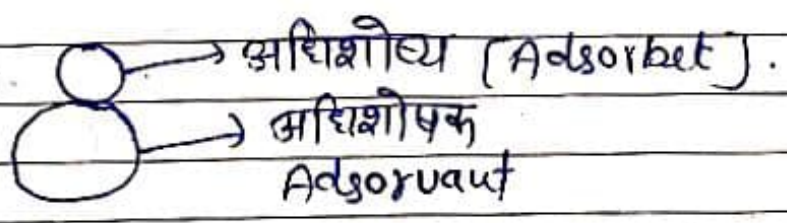 अधिशोष्य (Adsorbet).
अधिशोषक
Adsorvant